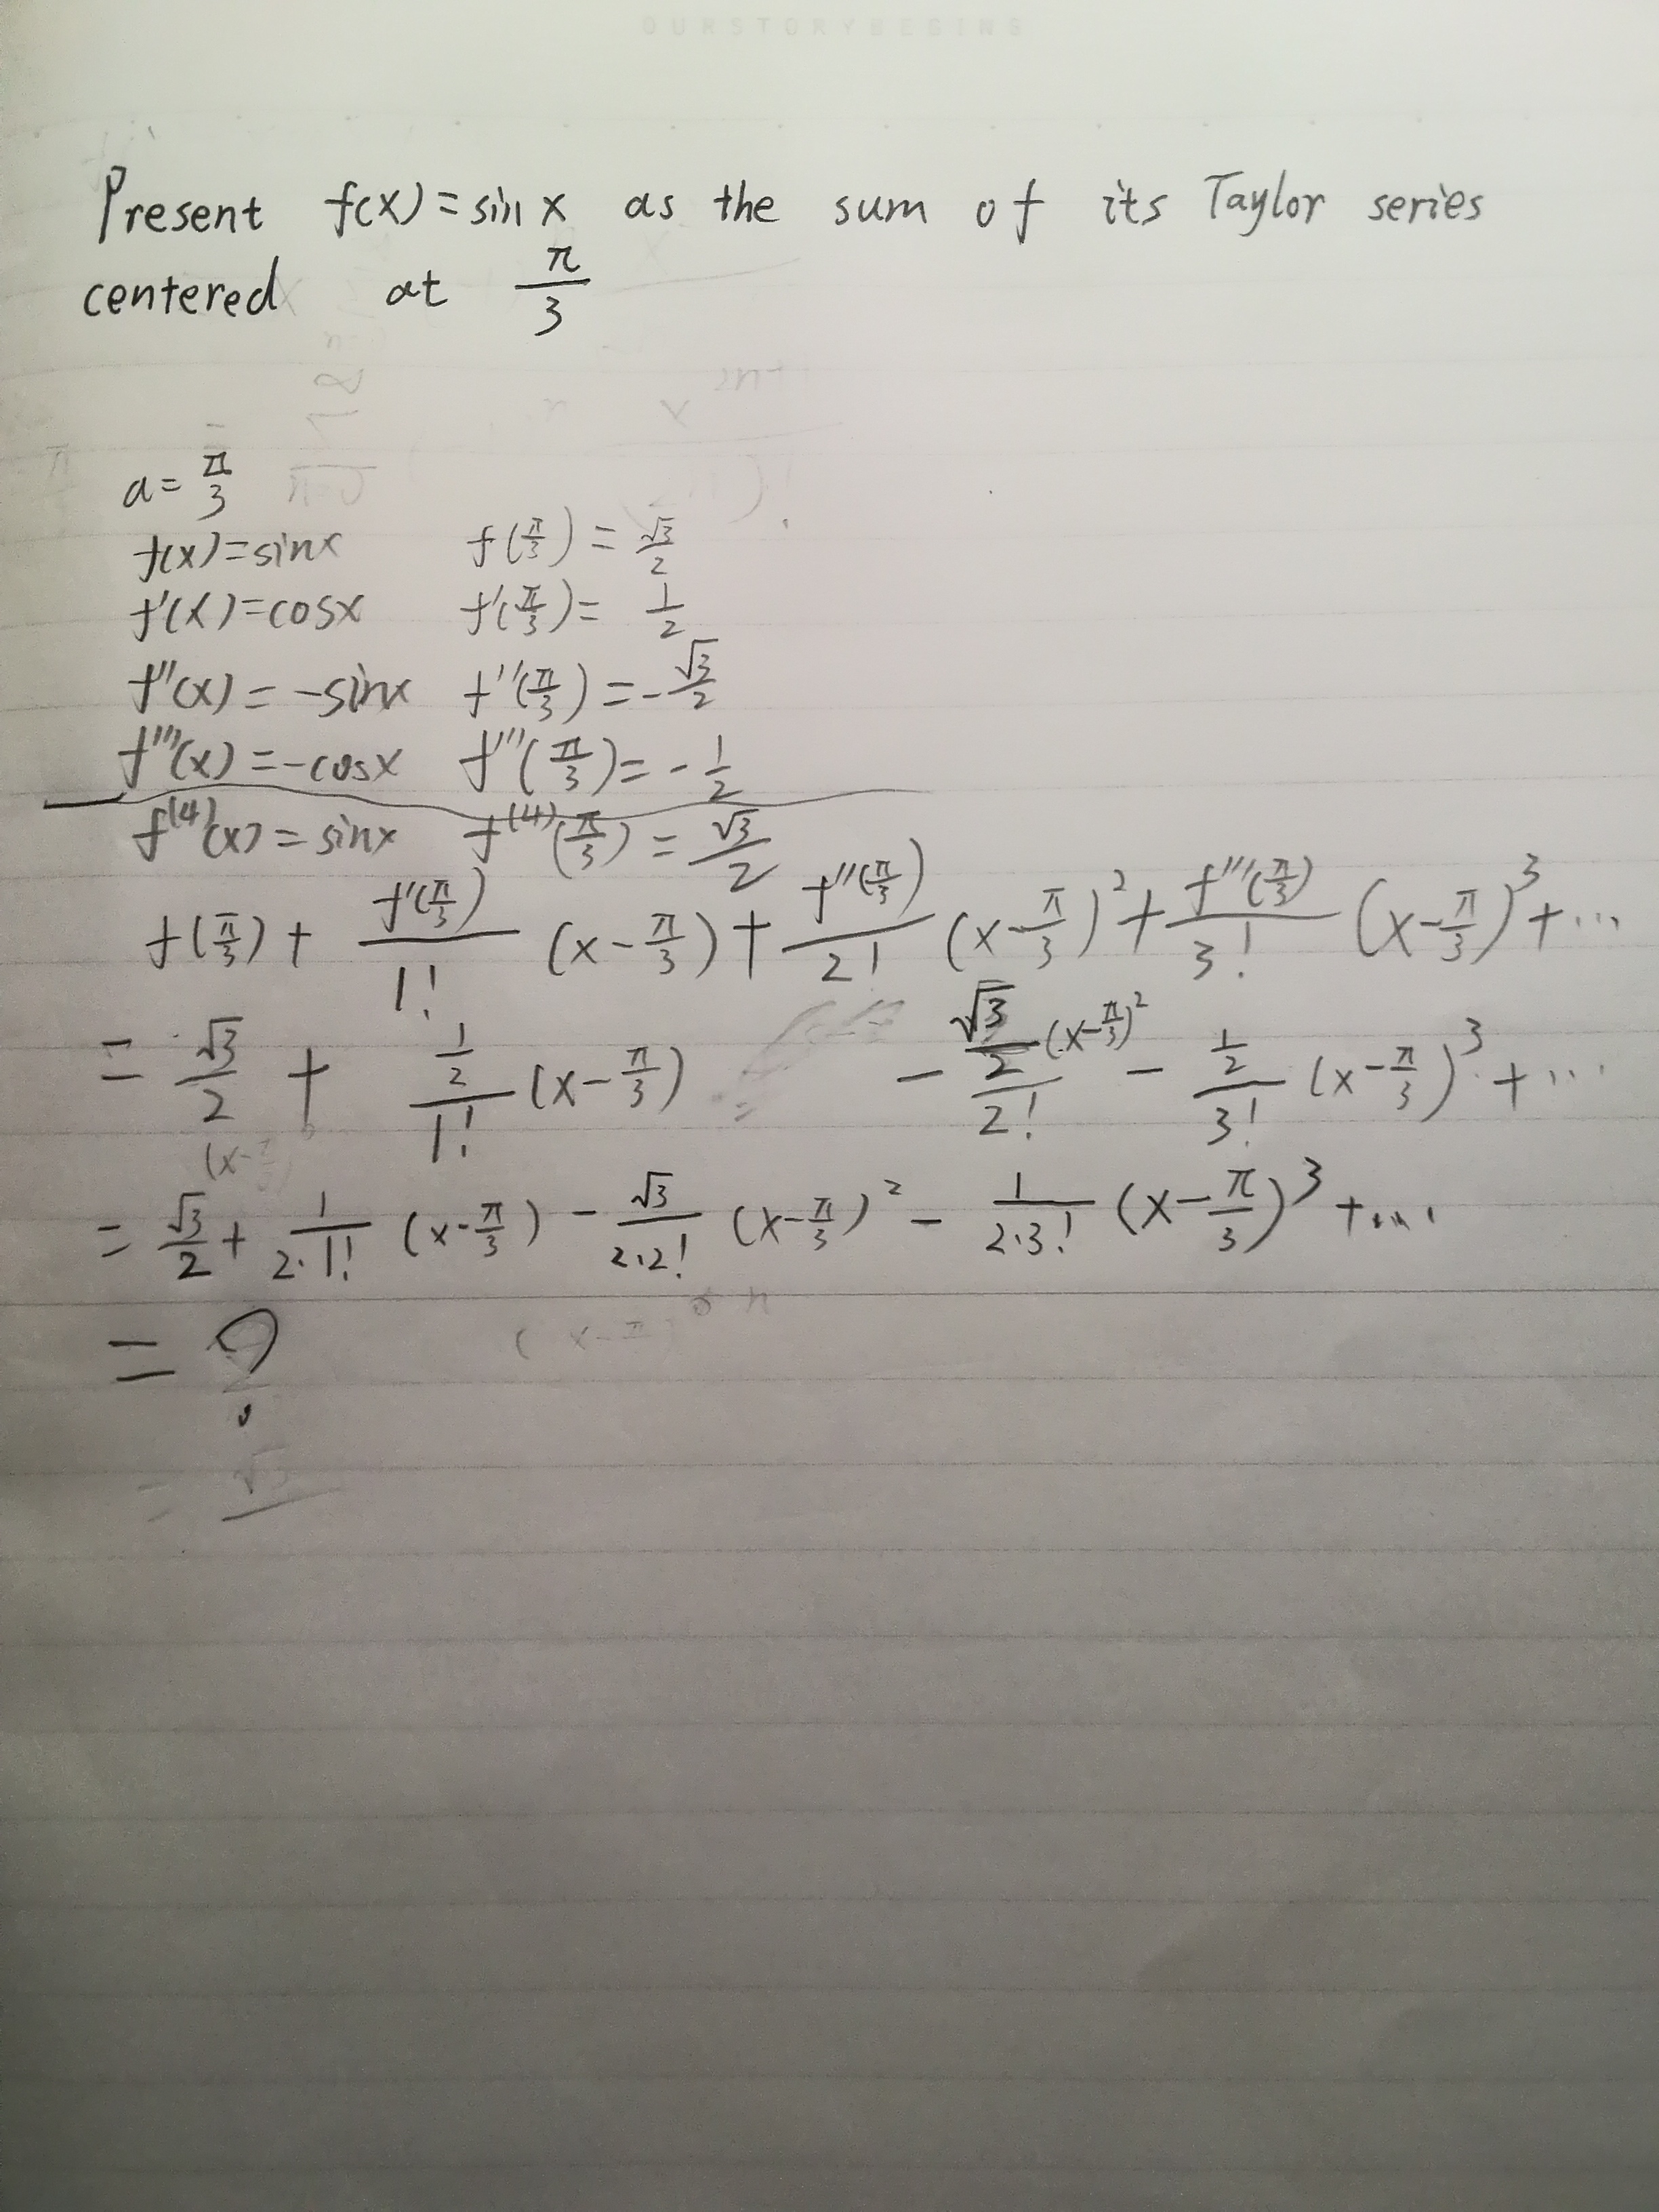 OURSTORYBEGINS
Present f(x) = sin x as the sum of its Taylor series
centered at π/3
a = π/3
f(x) = sinx f(π/3) = √3/2
f'(x) = cosx f'(π/3) = 1/2
f''(x) = -sinx f''(π/3) = -√3/2
f'''(x) = -cosx f'''(π/3) = -1/2
f⁽⁴⁾(x) = sinx f⁽⁴⁾(π/3) = √3/2
f(π/3) + f'(π/3)/1! (x-π/3) + f''(π/3)/2! (x-π/3)² + f'''(π/3)/3! (x-π/3)³ + ...
= √3/2 + (1/2)/1! (x-π/3) - (√3/2)/2! (x-π/3)² - (1/2)/3! (x-π/3)³ + ...
= √3/2 + 1/(2·1!) (x-π/3) - √3/(2·2!) (x-π/3)² - 1/(2·3!) (x-π/3)³ + ...
= ?